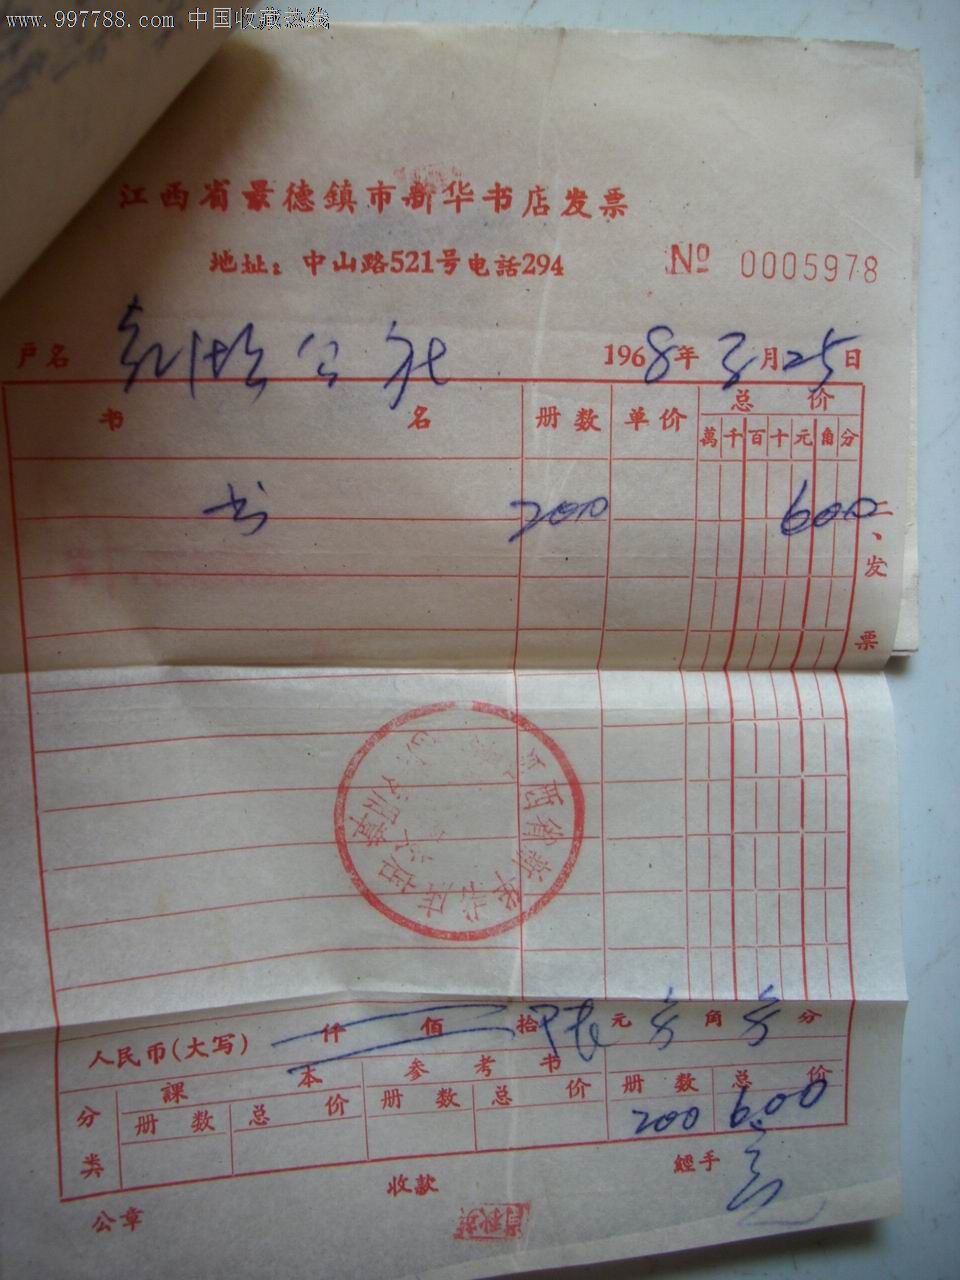 www.997788.com 中国收藏热线
江西省景德鎮市新华书店发票
地址：中山路521号电話294 № 0005978
户名 公社 1968年3月25日
书名 册数 单价 总价
萬 千 百 十 元 角 分
书 200 600
二、发票
江西省新华书店
人民币(大写) 仟 佰 拾 陆 元 角 分
分类 課本 参考书
册数 总价 册数 总价 册数 总价
200 6.00
公章 收款 經手